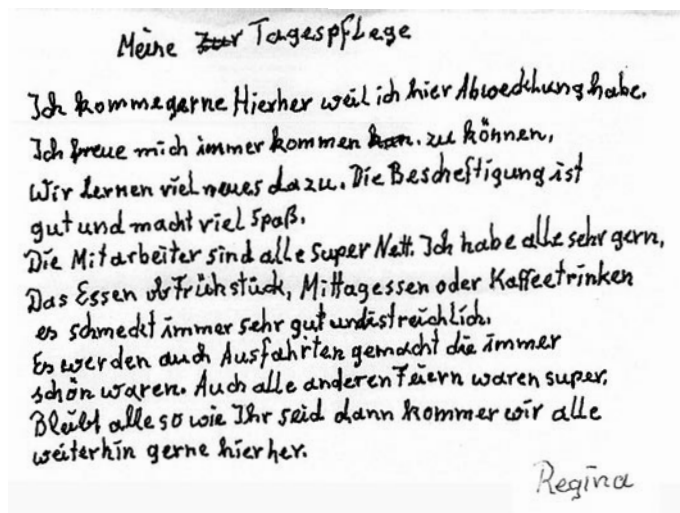 Meine Zur Tagespflege
Ich komme gerne Hierher weil ich hier Abwechlung habe.
Ich freue mich immer kommen kan. zu können,
Wir lernen viel neues dazu. Die Bescheftigung ist
gut und macht viel Spaß.
Die Mitarbeiter sind alle Super Nett. Ich habe alle sehr gern,
Das Essen ob Frühstück, Mittagessen oder Kaffeetrinken
es schmeckt immer sehr gut und ist reichlich.
Es werden auch Ausfahrten gemacht die immer
schön waren. Auch alle anderen Feiern waren super.
Bleibt alle so wie Ihr seid dann kommer wir alle
weiterhin gerne hierher.
Regina